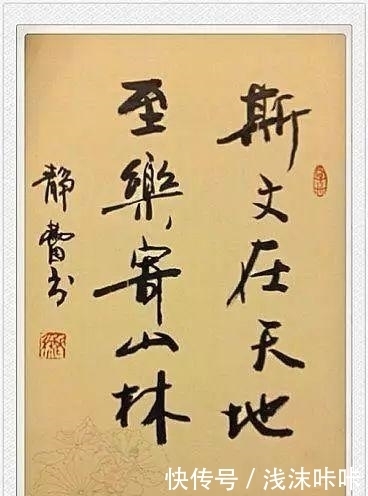 斯文在天地
至樂寄山林
静蕾书
快传号/浅沫咔咔